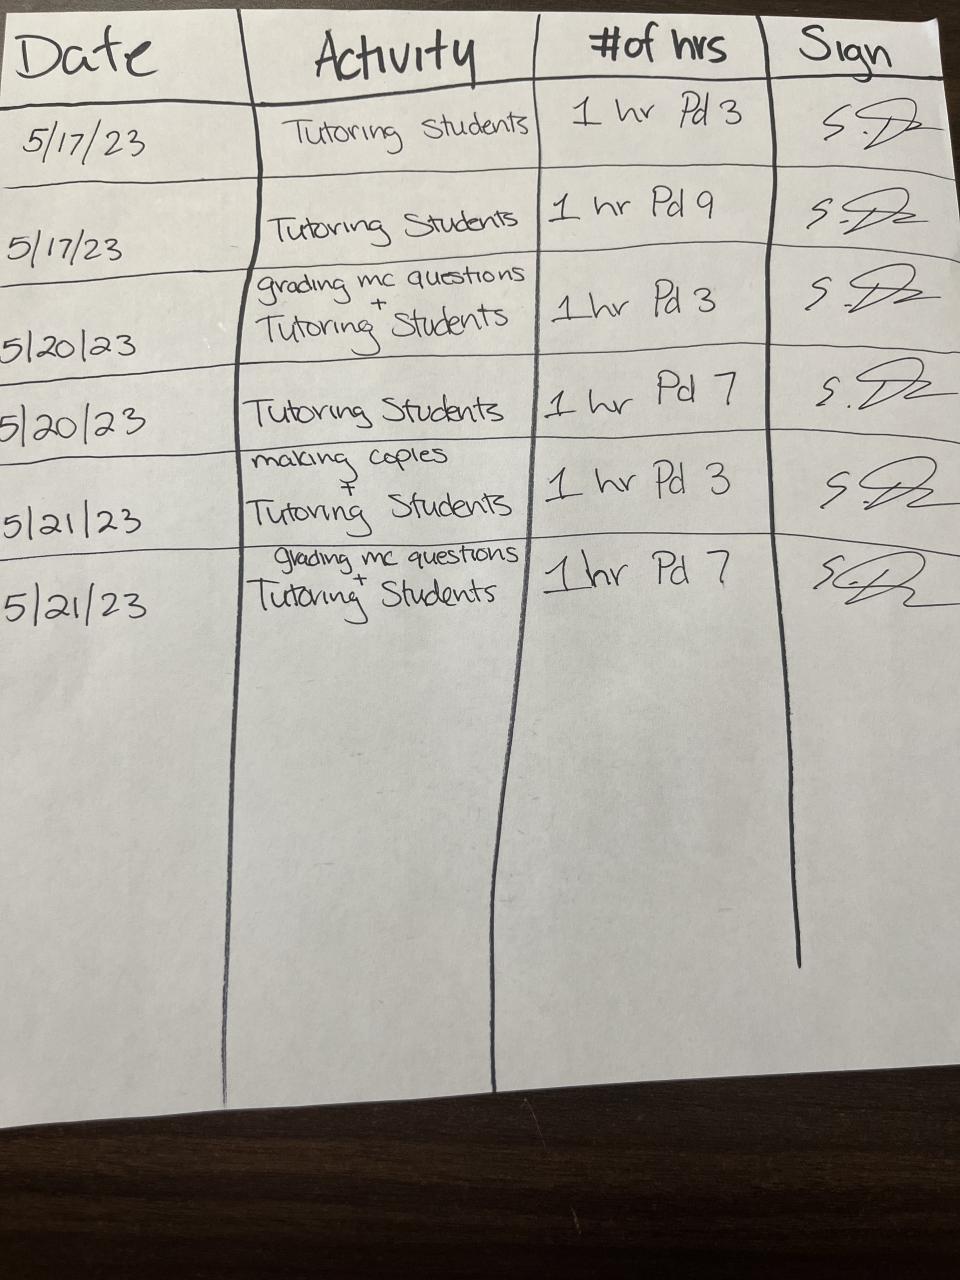 Date Activity #of hrs Sign
5/17/23 Tutoring Students 1 hr Pd 3
5/17/23 Tutoring Students 1 hr Pd 9
grading mc questions
+
5/20/23 Tutoring Students 1 hr Pd 3
5/20/23 Tutoring Students 1 hr Pd 7
making copies
+
5/21/23 Tutoring Students 1 hr Pd 3
grading mc questions
+
5/21/23 Tutoring Students 1 hr Pd 7